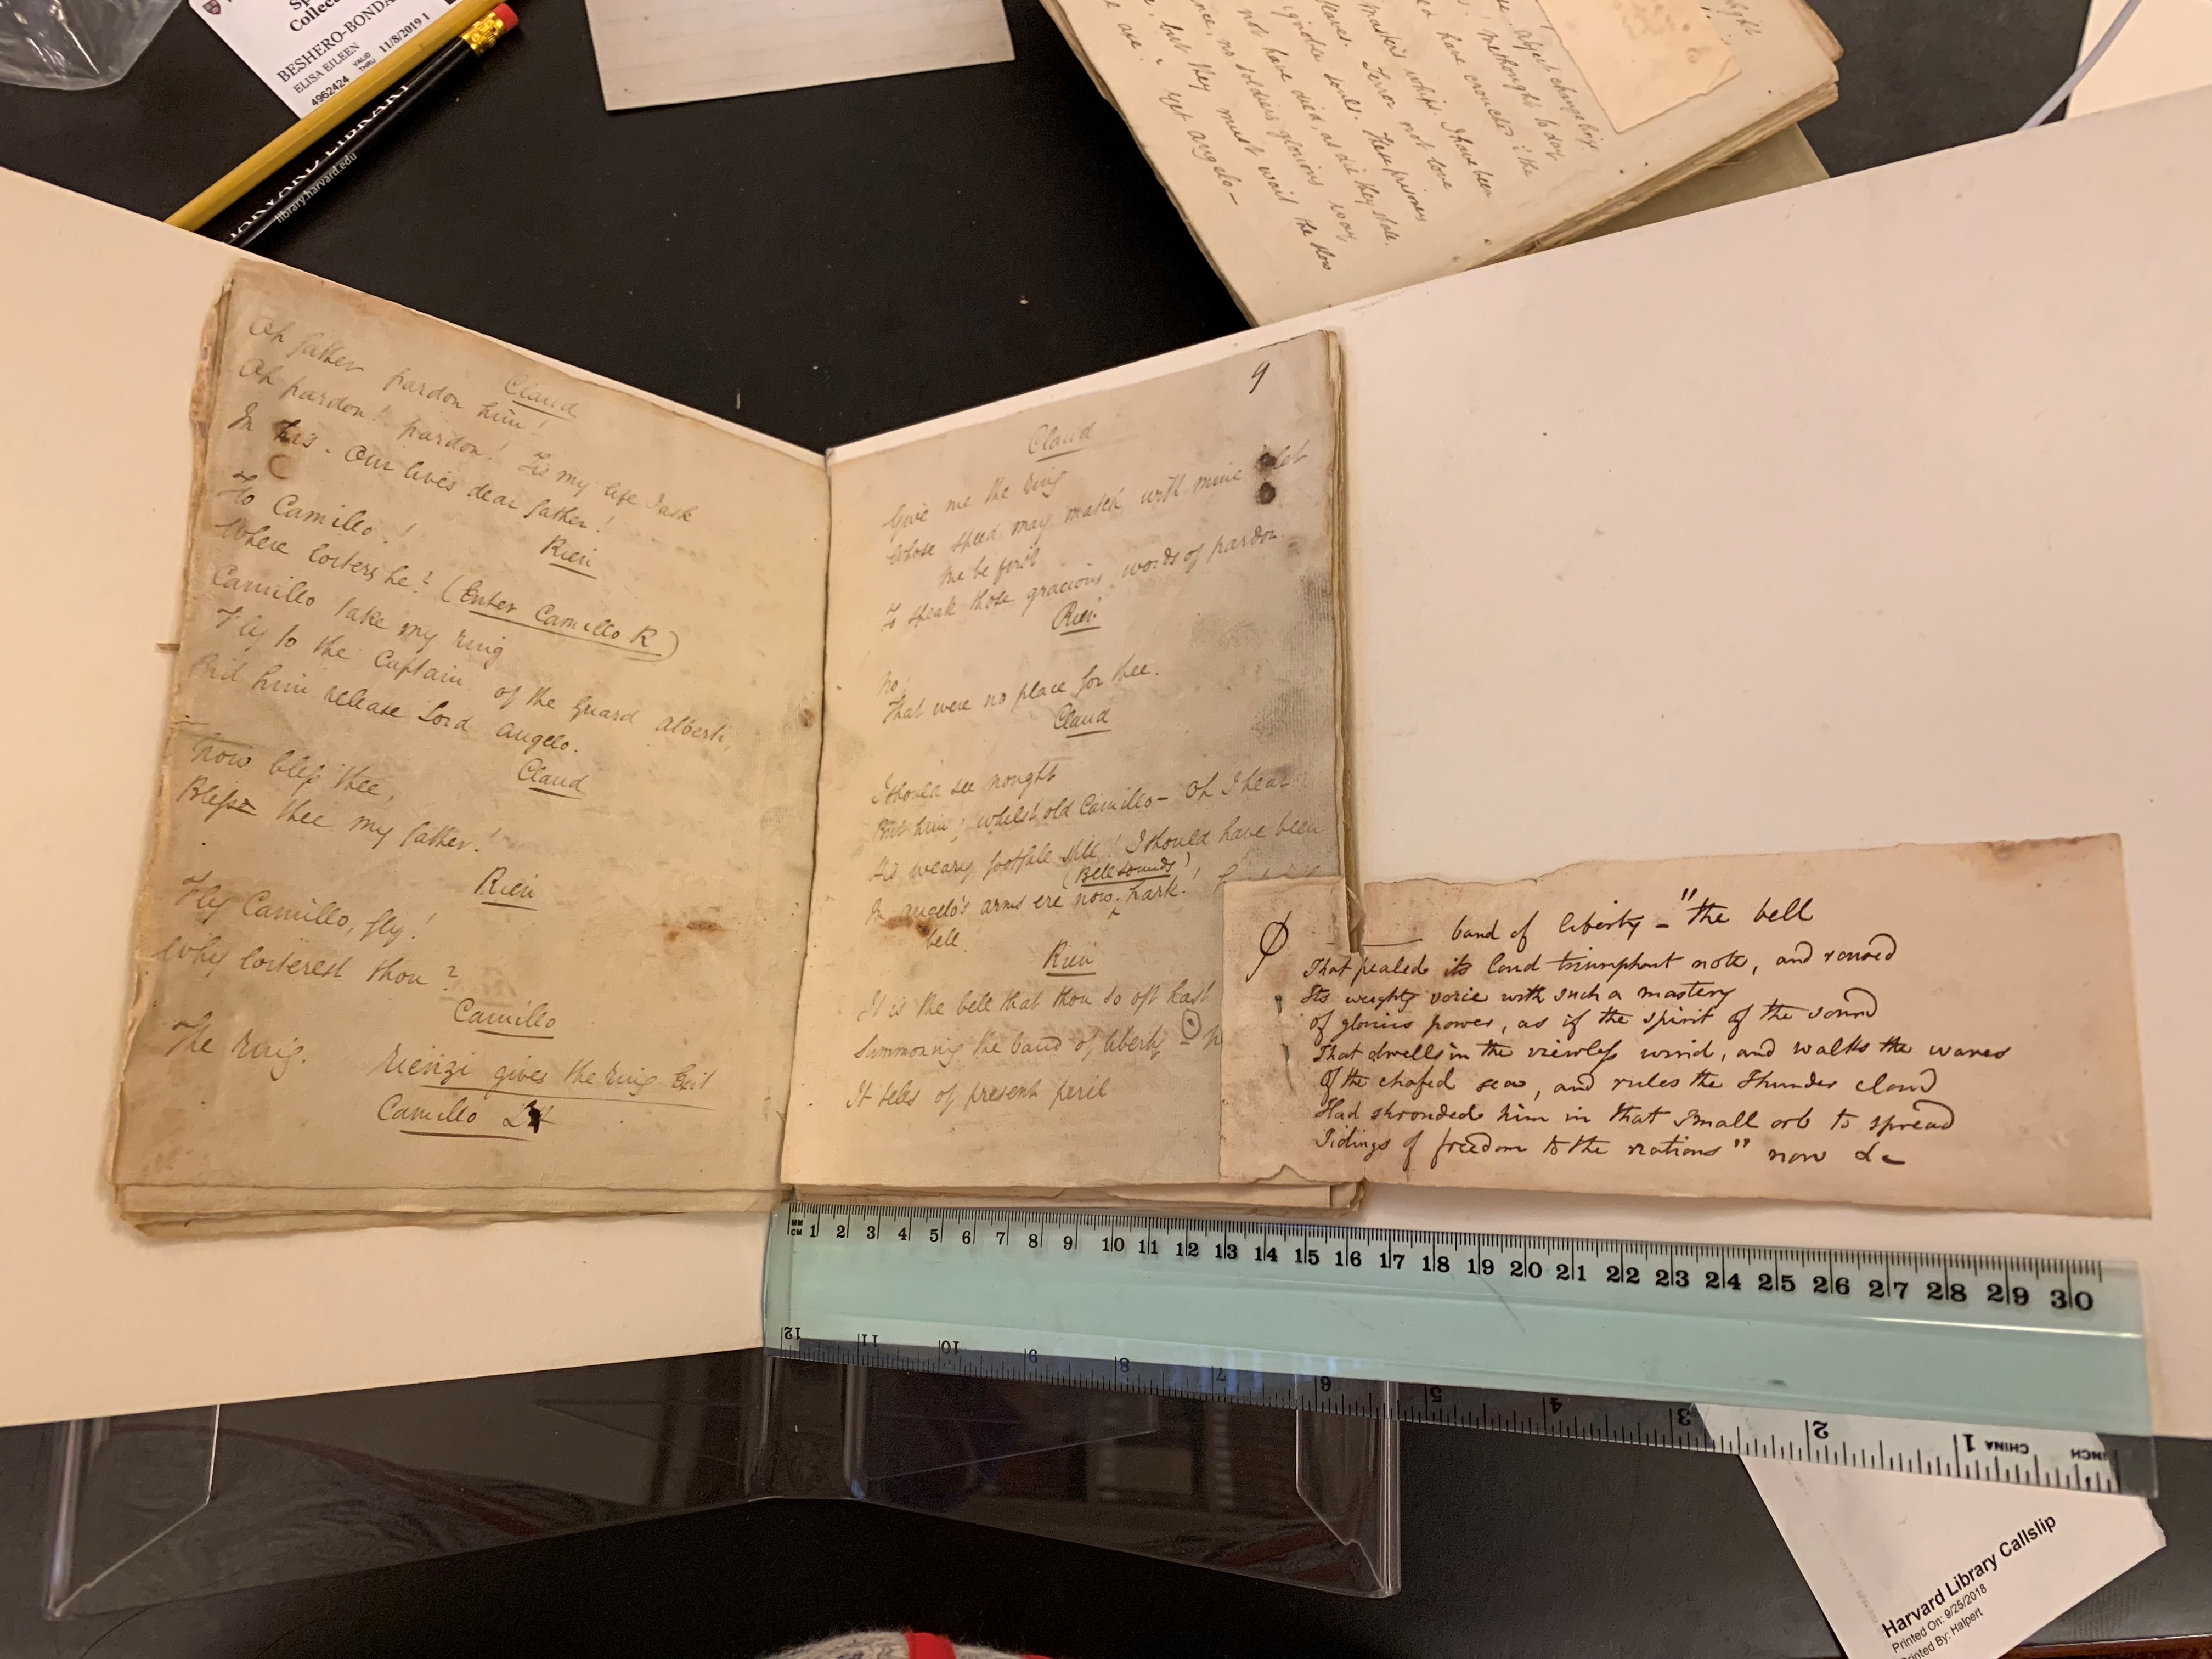 Collec
BESHERO-BONDA
ELISA EILEEN
4962424 VALID THRU 11/8/2019 1
library.harvard.edu
abject changeling
methought to day
have crouched i the
master's whip. I have been
Terror not love
ignoble souls. These prisoners
not have died, as die they shall.
no soldiers glorious way,
but they must wait the slow
Yet Angelo-
Claud
Oh father pardon him!
Oh pardon! pardon! Tis my life I ask
In his. Our lives dear father!
Rien
To Camillo!
Where loiters he? (Enter Camillo R)
Camillo take my ring
Fly to the Captain of the Guard Alberti,
Bid him release Lord Angelo.
Claud
Now bless thee,
Bless thee my father!
Rien
Fly Camillo, fly!
Why loiterest thou?
Camillo
The ring.
Rienzi gives the ring Exit
Camillo
9
Claud
Give me the ring
Whose speed may match with mine let
me be first
To speak those gracious words of pardon.
Rien
No.
That were no place for thee.
Claud
I should see nought
But him; whilst old Camillo- Oh I hear
His weary footfall still! I should have been
(Bell sounds)
In Angelo's arms ere now. hark!
bell!
Rien
It is the bell that thou so oft hast
Summoning the band of liberty
It tells of present peril
band of liberty - "the bell
That pealed its loud triumphant note, and roused
Its weighty voice with such a mastery
of glorious power, as if the spirit of the sound
That dwells in the viewless wind, and walks the waves
Of the chafed sea, and rules the Thunder cloud
Had shrouded him in that small orb to spread
Tidings of freedom to the nations" now &c
MM
CM 1 2 3 4 5 6 7 8 9 10 11 12 13 14 15 16 17 18 19 20 21 22 23 24 25 26 27 28 29 30
12 11 10 9 8 7 6 5 4 3 2 1 CHINA INCH
Harvard Library Callslip
Printed On: 9/25/2018
Printed By: Halpert